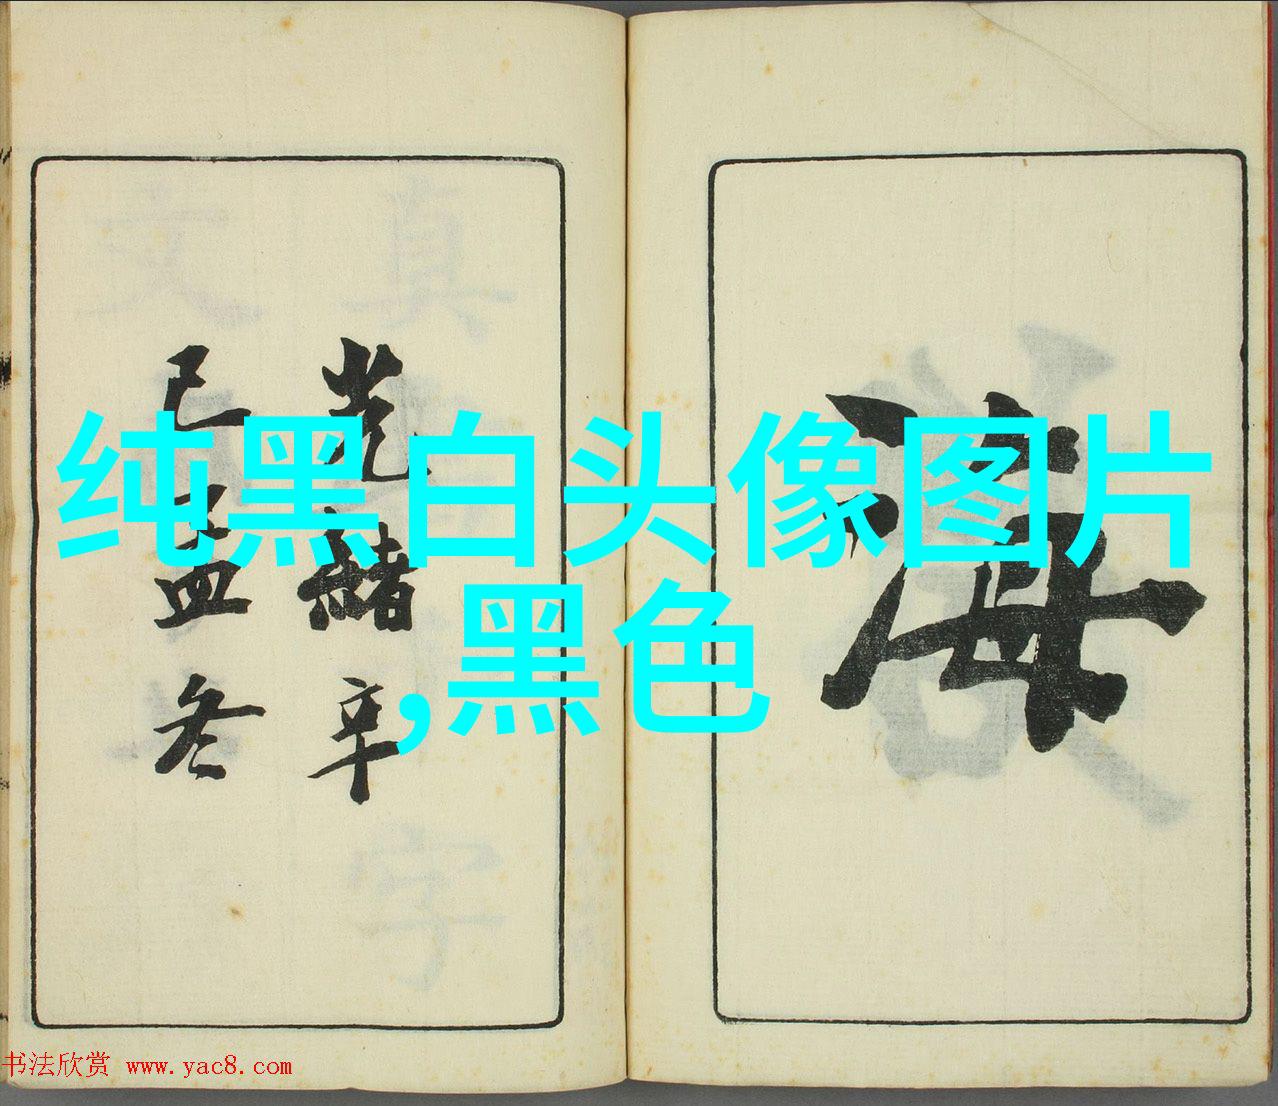 纯黑白头像图片
,黑色
海
光緒辛
巳孟冬
书法欣赏 www.yac8.com